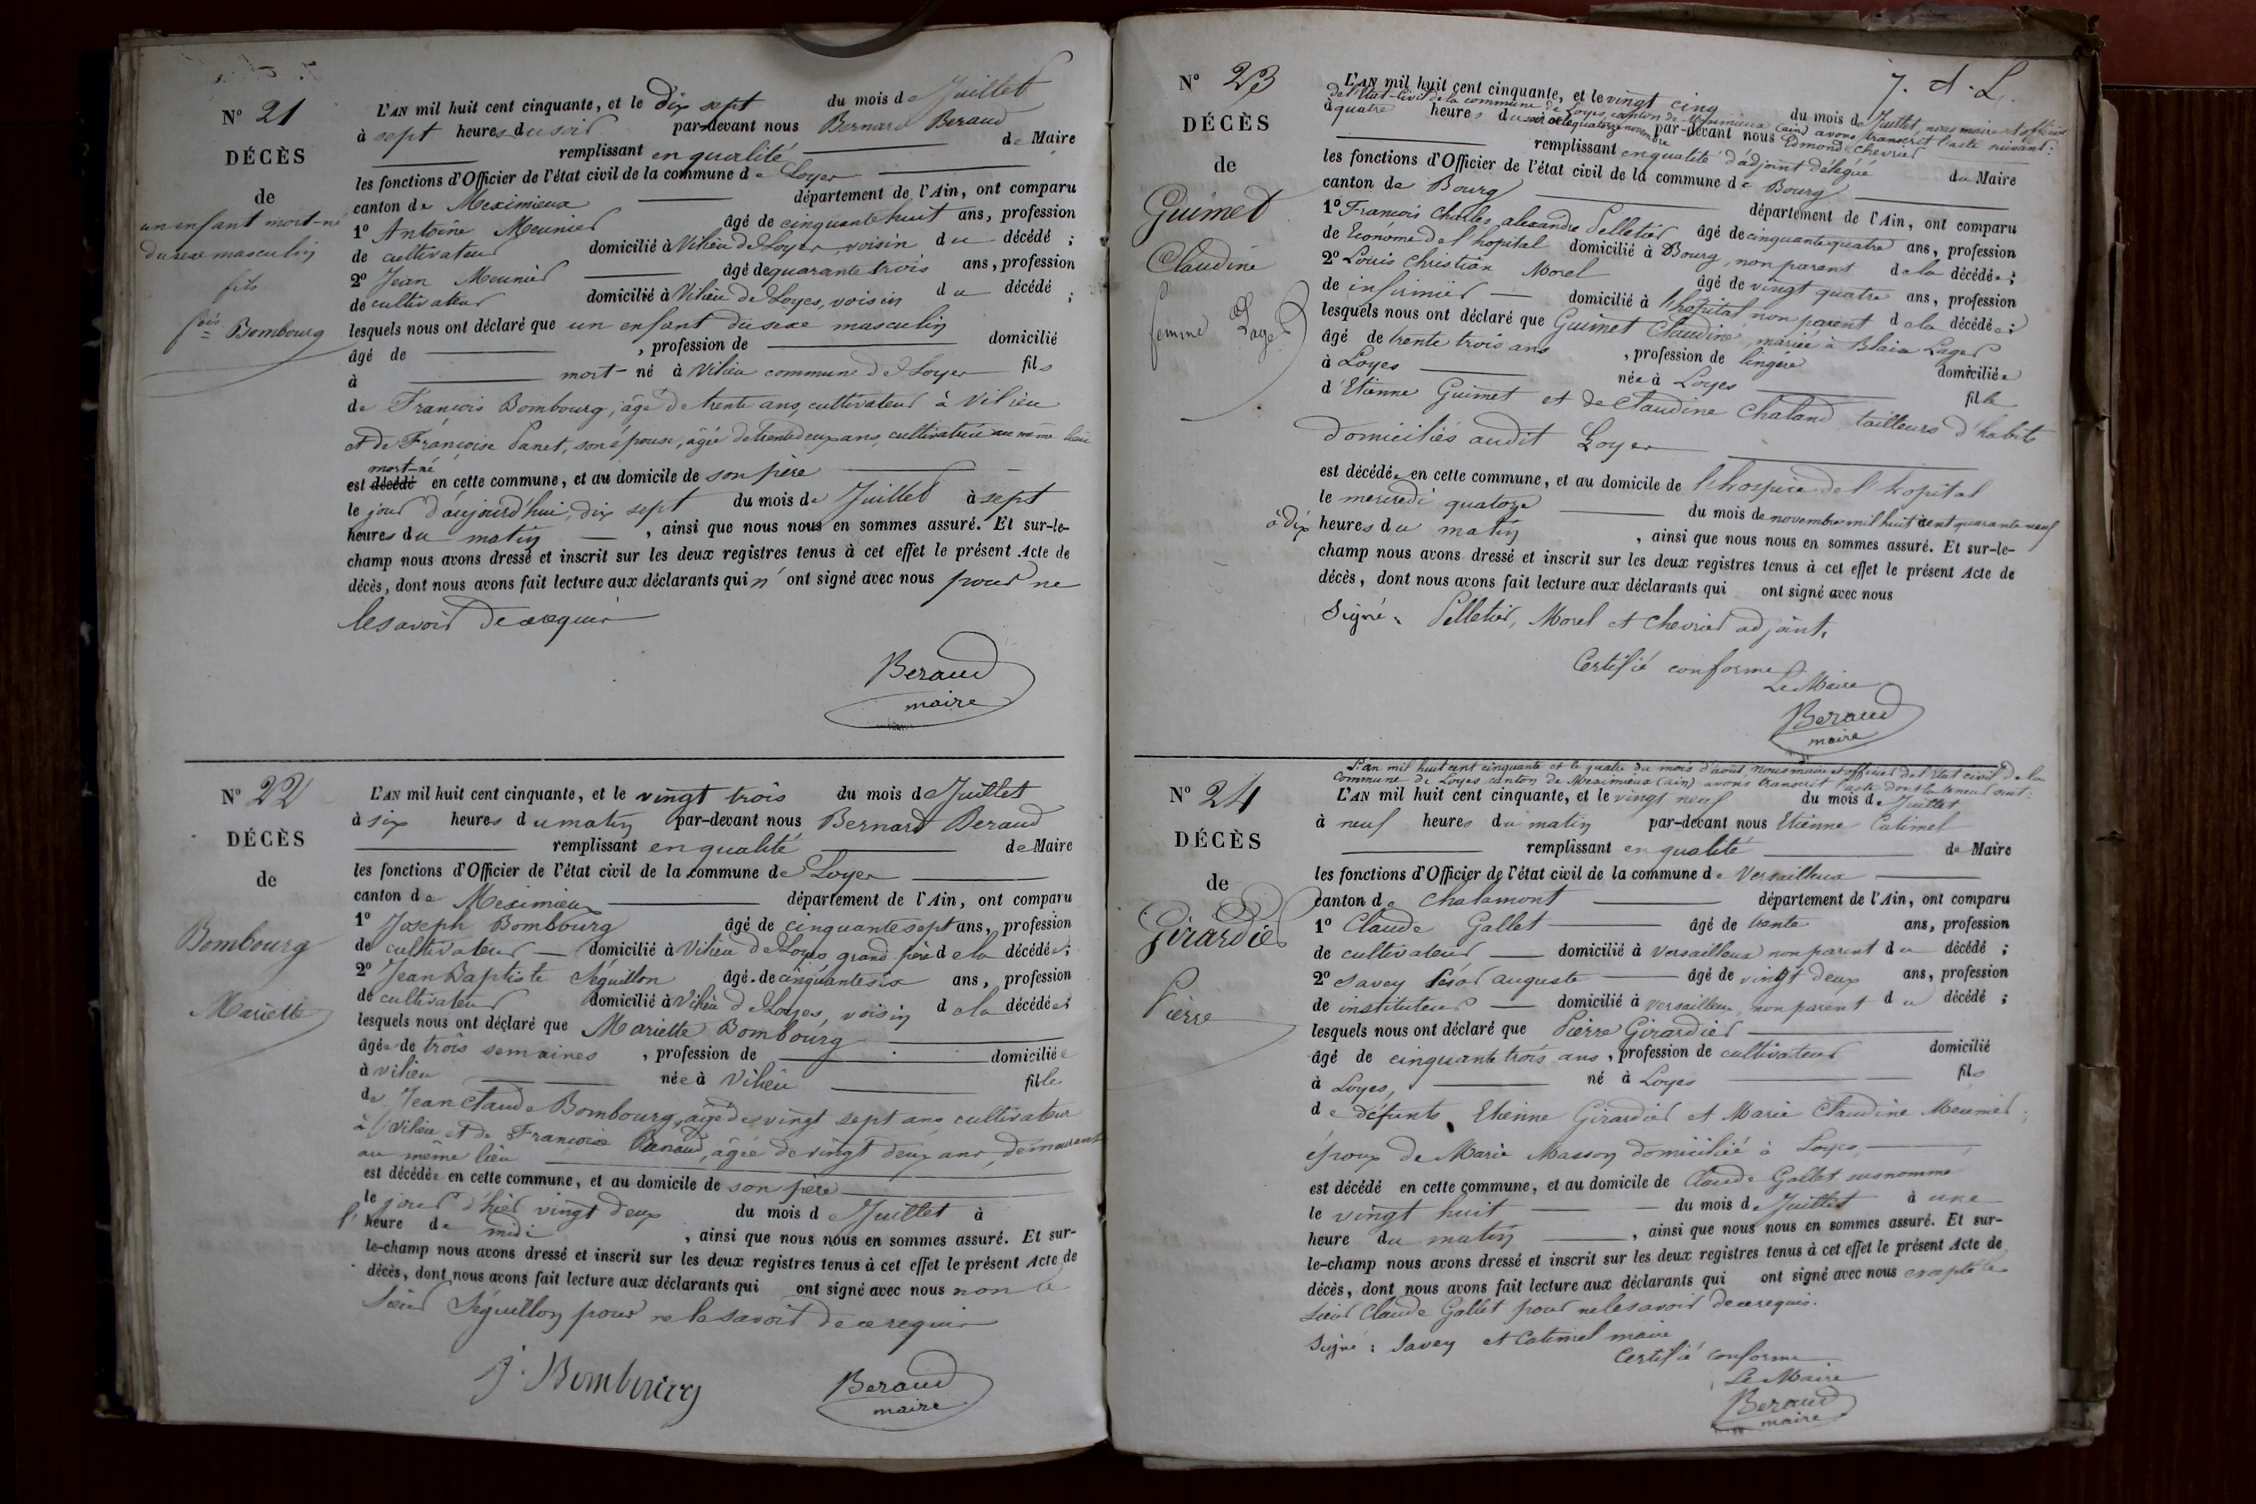 N° 21
DÉCÈS
de
un enfant mort-né
du sexe masculin
fils
fois Bombourg
L'AN mil huit cent cinquante, et le dix sept du mois de Juillet
à sept heures du soir par-devant nous Bernard Beraud
remplissant en qualité de Maire
les fonctions d'Officier de l'état civil de la commune de Loyes
canton de Meximieux département de l'Ain, ont comparu
1° Antoine Meunier âgé de cinquante huit ans, profession
de cultivateur domicilié à Vilieu de Loyes, voisin du décédé ;
2° Jean Meunier âgé de quarante trois ans, profession
de cultivateur domicilié à Vilieu de Loyes, voisin du décédé ;
lesquels nous ont déclaré que un enfant du sexe masculin
âgé de , profession de domicilié
à mort-né à Vilieu commune de Loyes fils
de François Bombourg, âgé de trente ans, cultivateur à Vilieu
et de Françoise Panet, son épouse, âgée de trente deux ans, cultivatrice au même lieu
mort-né
est décédé en cette commune, et au domicile de son père
le jour d'aujourd'hui, dix sept du mois de Juillet à sept
heures du matin , ainsi que nous nous en sommes assuré. Et sur-le-
champ nous avons dressé et inscrit sur les deux registres tenus à cet effet le présent Acte de
décès, dont nous avons fait lecture aux déclarants qui n'ont signé avec nous pour ne
le savoir de ce requis
Beraud
maire
N° 22
DÉCÈS
de
Bombourg
Mariette
L'AN mil huit cent cinquante, et le vingt trois du mois de Juillet
à six heures du matin par-devant nous Bernard Beraud
remplissant en qualité de Maire
les fonctions d'Officier de l'état civil de la commune de Loyes
canton de Meximieux département de l'Ain, ont comparu
1° Joseph Bombourg âgé de cinquante sept ans, profession
de cultivateur domicilié à Vilieu de Loyes grand père de la décédée ;
2° Jean Baptiste Séguillon âgé de cinquante six ans, profession
de cultivateur domicilié à Vilieu de Loyes, voisin de la décédée
lesquels nous ont déclaré que Mariette Bombourg
âgée de trois semaines , profession de domiciliée
à Vilieu née à Vilieu fille
de Jean Claude Bombourg, âgé de vingt sept ans cultivateur
à Vilieu et de Françoise , âgée de vingt deux ans, demeurant
au même lieu
est décédée en cette commune, et au domicile de son père
le jour d'hier vingt deux du mois de Juillet à
l'heure de midi , ainsi que nous nous en sommes assuré. Et sur-
le-champ nous avons dressé et inscrit sur les deux registres tenus à cet effet le présent Acte de
décès, dont nous avons fait lecture aux déclarants qui ont signé avec nous non le
Sieur Séguillon pour ne le savoir de ce requis
J. Bombourg
Beraud
maire
7. A. L.
N° 23
DÉCÈS
de
Guimet
Claudine
femme Lager
L'AN mil huit cent cinquante, et le vingt cinq du mois de Juillet, nous maire et officier
de l'Etat-Civil de la commune de Loyes, canton de Meximieux (ain) avons transcrit l'acte suivant :
à quatre heures du soir le quatorze novembre par-devant nous Edmond Chevrier
remplissant en qualité d'adjoint délégué du Maire
les fonctions d'Officier de l'état civil de la commune de Bourg
canton de Bourg département de l'Ain, ont comparu
1° François Charles alexandre Pelletier âgé de cinquante quatre ans, profession
de Econome de l'hopital domicilié à Bourg, non parent de la décédée ;
2° Louis Christian Morel âgé de vingt quatre ans, profession
de infirmier domicilié à l'hopital non parent de la décédée ;
lesquels nous ont déclaré que Guimet Claudine, mariée à Blaise Lager
âgé de trente trois ans , profession de lingère domiciliée
à Loyes née à Loyes fille
d'Etienne Guimet et de Claudine Chaland, tailleurs d'habits
domiciliés audit Loyes
est décédée en cette commune, et au domicile de l'hospice de l'hopital
le mercredi quatorze du mois de novembre mil huit cent quarante neuf
à dix heures du matin , ainsi que nous nous en sommes assuré. Et sur-le-
champ nous avons dressé et inscrit sur les deux registres tenus à cet effet le présent Acte de
décès, dont nous avons fait lecture aux déclarants qui ont signé avec nous
Signé : Pelletier, Morel et Chevrier adjoint.
Certifié conforme
Le Maire
Beraud
maire
N° 24
DÉCÈS
de
Girardier
Pierre
L'an mil huit cent cinquante et le quatre du mois d'août, Nous maire et officier de l'Etat civil de la
commune de Loyes canton de Meximieux (ain) avons transcrit l'acte dont la teneur suit :
L'AN mil huit cent cinquante, et le vingt neuf du mois de Juillet
à neuf heures du matin par-devant nous Etienne Catimel
remplissant en qualité de Maire
les fonctions d'Officier de l'état civil de la commune de Versailleux
canton de Chalamont département de l'Ain, ont comparu
1° Claude Gallet âgé de trente ans, profession
de cultivateur domicilié à Versailleux non parent du décédé ;
2° Savey César auguste âgé de vingt deux ans, profession
de instituteur domicilié à Versailleux, non parent du décédé ;
lesquels nous ont déclaré que Pierre Girardier
âgé de cinquante trois ans, profession de cultivateur domicilié
à Loyes, né à Loyes fils
de défunts Etienne Girardier et Marie Claudine Meunier ;
époux de Marie Masson domicilié à Loyes
est décédé en cette commune, et au domicile de Claude Gallet susnommé
le vingt huit du mois de Juillet à une
heure du matin , ainsi que nous nous en sommes assuré. Et sur-
le-champ nous avons dressé et inscrit sur les deux registres tenus à cet effet le présent Acte de
décès, dont nous avons fait lecture aux déclarants qui ont signé avec nous excepté le
sieur Claude Gallet pour ne le savoir de ce requis.
Signé : Savey et Catimel maire
Certifié conforme
Le Maire
Beraud
maire